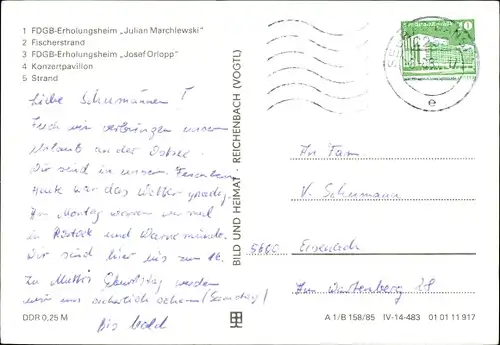 1 FDGB-Erholungsheim „Julian Marchlewski"
2 Fischerstrand
3 FDGB-Erholungsheim „Josef Orlopp"
4 Konzertpavillon
5 Strand
Liebe Schumänner!
Auch wir verbringen unseren
Urlaub an der Ostsee.
Wir sind in unserem
Heute war das Wetter
Am Montag waren wir mal
in Rostock und Warnemünde.
Wir sind hier bis zum 16.
Zu Muttis Geburtstag werden
wir uns sicherlich sehen (Samstag)
Bis bald
DDR 0,25 M
BILD UND HEIMAT REICHENBACH (VOGTL)
10
e
An Fam
V. Schumann
5600 Eisenach
Am Wartenberg 28
A 1/B 158/85 IV-14-483 01 01 11 917